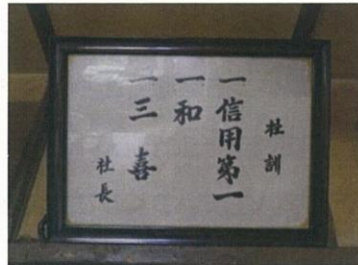 社訓
一信用第一
一和
一三喜
社長